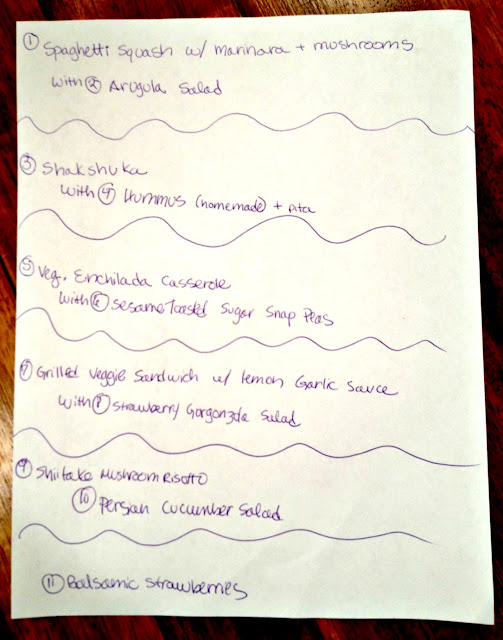 ① Spaghetti Squash w/ marinara + mushrooms
with ② Arugula Salad
③ Shakshuka
with ④ Hummus (homemade) + pita
⑤ Veg. Enchilada Casserole
with ⑥ Sesame Toasted Sugar Snap Peas
⑦ Grilled Veggie Sandwich w/ lemon Garlic Sauce
with ⑧ Strawberry Gorgonzola Salad
⑨ Shiitake Mushroom Risotto
⑩ Persian Cucumber Salad
⑪ Balsamic Strawberries